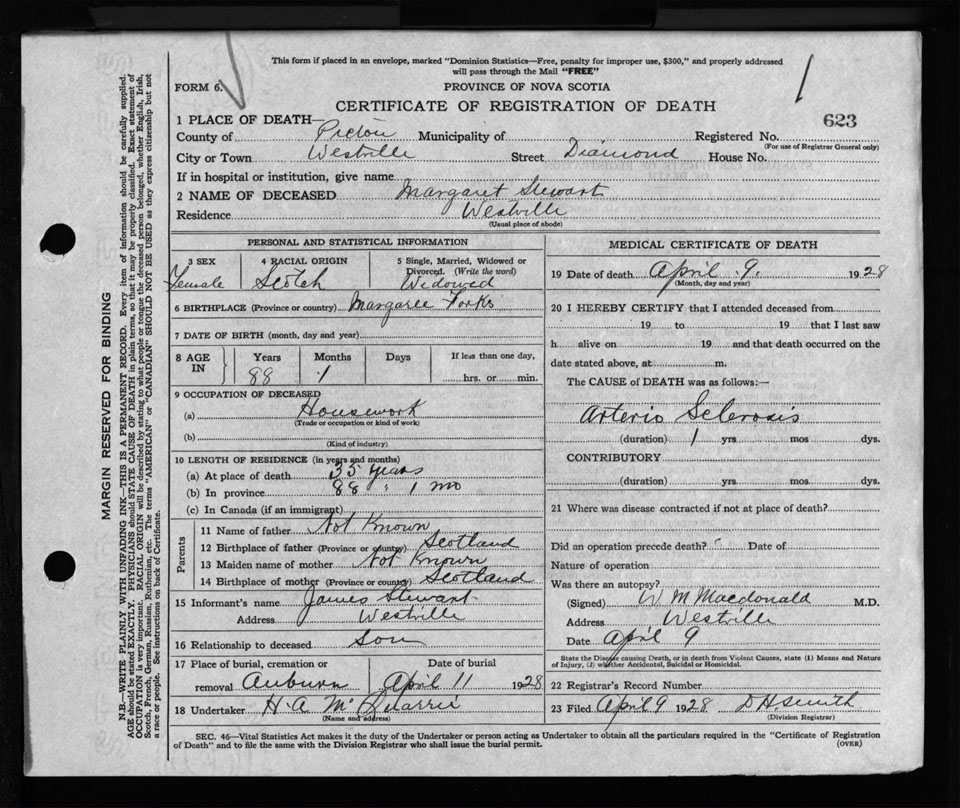 This form if placed in an envelope, marked "Dominion Statistics—Free, penalty for improper use, $300," and properly addressed
will pass through the Mail "FREE"
FORM 6.
PROVINCE OF NOVA SCOTIA
CERTIFICATE OF REGISTRATION OF DEATH
623
1 PLACE OF DEATH—
County of Pictou Municipality of Registered No.
(For use of Registrar General only)
City or Town Westville Street Diamond House No.
If in hospital or institution, give name
2 NAME OF DECEASED Margaret Stewart
Residence Westville
(Usual place of abode)
PERSONAL AND STATISTICAL INFORMATION
3 SEX 4 RACIAL ORIGIN 5 Single, Married, Widowed or
Divorced. (Write the word)
Female Scotch Widowed
6 BIRTHPLACE (Province or country) Margaree Forks
7 DATE OF BIRTH (month, day and year)
8 AGE IN Years Months Days If less than one day,
88 1 hrs. or min.
9 OCCUPATION OF DECEASED
(a) Housework
(Trade or occupation or kind of work)
(b)
(Kind of industry)
10 LENGTH OF RESIDENCE (in years and months)
(a) At place of death 35 years
(b) In province 88 " 1 mo
(c) In Canada (if an immigrant)
Parents
11 Name of father Not Known
12 Birthplace of father (Province or country) Scotland
13 Maiden name of mother Not Known
14 Birthplace of mother (Province or county) Scotland
15 Informant's name James Stewart
Address Westville
16 Relationship to deceased Son
17 Place of burial, cremation or Date of burial
removal Auburn April 11 1928
18 Undertaker H. A. Mc
(Name and address)
MEDICAL CERTIFICATE OF DEATH
19 Date of death April 9. 1928
(Month, day and year)
20 I HEREBY CERTIFY that I attended deceased from
19 to 19 that I last saw
h alive on 19 and that death occurred on the
date stated above, at m.
The CAUSE of DEATH was as follows:—
Arterio Sclerosis
(duration) 1 yrs. mos dys.
CONTRIBUTORY
(duration) yrs. mos. dys.
21 Where was disease contracted if not at place of death?
Did an operation precede death? Date of
Nature of operation
Was there an autopsy?
(Signed) W M Macdonald M.D.
Address Westville
Date April 9
State the Disease causing Death, or in death from Violent Causes, state (1) Means and Nature
of Injury, (2) whether Accidental, Suicidal or Homicidal.
22 Registrar's Record Number
23 Filed April 9 1928 D H. Smith
(Division Registrar)
SEC. 46—Vital Statistics Act makes it the duty of the Undertaker or person acting as Undertaker to obtain all the particulars required in the "Certificate of Registration
of Death" and to file the same with the Division Registrar who shall issue the burial permit.
(OVER)
MARGIN RESERVED FOR BINDING
N.B.—WRITE PLAINLY WITH UNFADING INK—THIS IS A PERMANENT RECORD. Every item of information should be carefully supplied.
AGE should be stated EXACTLY. PHYSICIANS should STATE CAUSE OF DEATH in plain terms, so that it may be properly classified. Exact statement of
OCCUPATION is very important. RACIAL ORIGIN will be described by stating to what people or tongue the deceased person belonged, whether English, Irish,
Scotch, French, German, Russian, Ruthenian, etc. The terms "AMERICAN" or "CANADIAN" SHOULD NOT BE USED as they express citizenship but not
a race or people. See instructions on back of Certificate.